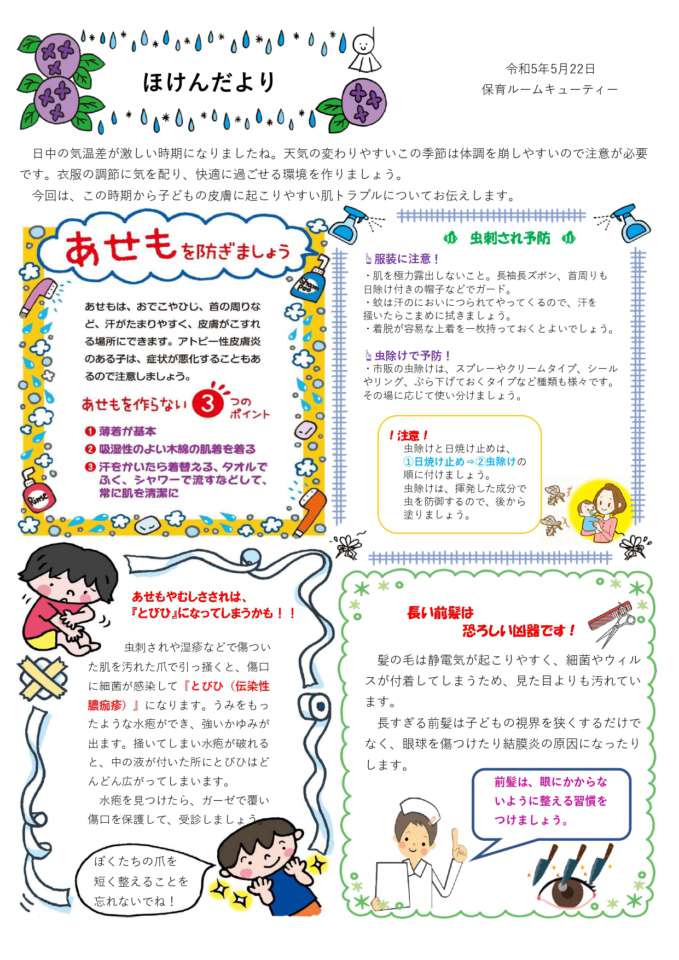 ほけんだより
令和5年5月22日
保育ルームキューティー
日中の気温差が激しい時期になりましたね。天気の変わりやすいこの季節は体調を崩しやすいので注意が必要
です。衣服の調節に気を配り、快適に過ごせる環境を作りましょう。
今回は、この時期から子どもの皮膚に起こりやすい肌トラブルについてお伝えします。
あせもを防ぎましょう
あせもは、おでこやひじ、首の周りな
ど、汗がたまりやすく、皮膚がこすれ
る場所にできます。アトピー性皮膚炎
のある子は、症状が悪化することもあ
るので注意しましょう。
あせもを作らない3つの
ポイント
❶薄着が基本
❷吸湿性のよい木綿の肌着を着る
❸汗をかいたら着替える、タオルで
ふく、シャワーで流すなどして、
常に肌を清潔に
Rinse
虫刺され予防
服装に注意！
・肌を極力露出しないこと。長袖長ズボン、首周りも
日除け付きの帽子などでガード。
・蚊は汗のにおいにつられてやってくるので、汗を
掻いたらこまめに拭きましょう。
・着脱が容易な上着を一枚持っておくとよいでしょう。
虫除けで予防！
・市販の虫除けは、スプレーやクリームタイプ、シール
やリング、ぶら下げておくタイプなど種類も様々です。
その場に応じて使い分けましょう。
！注意！
虫除けと日焼け止めは、
①日焼け止め⇒②虫除けの
順に付けましょう。
虫除けは、揮発した成分で
虫を防御するので、後から
塗りましょう。
あせもやむしさされは、
『とびひ』になってしまうかも！！
虫刺されや湿疹などで傷つい
た肌を汚れた爪で引っ掻くと、傷口
に細菌が感染して『とびひ（伝染性
膿痂疹）』になります。うみをもっ
たような水疱ができ、強いかゆみが
出ます。掻いてしまい水疱が破れる
と、中の液が付いた所にとびひはど
んどん広がってしまいます。
水疱を見つけたら、ガーゼで覆い
傷口を保護して、受診しましょう
ぼくたちの爪を
短く整えることを
忘れないでね！
長い前髪は
恐ろしい凶器です！
髪の毛は静電気が起こりやすく、細菌やウィル
スが付着してしまうため、見た目よりも汚れてい
ます。
長すぎる前髪は子どもの視界を狭くするだけで
なく、眼球を傷つけたり結膜炎の原因になったり
します。
前髪は、眼にかからな
いように整える習慣を
つけましょう。